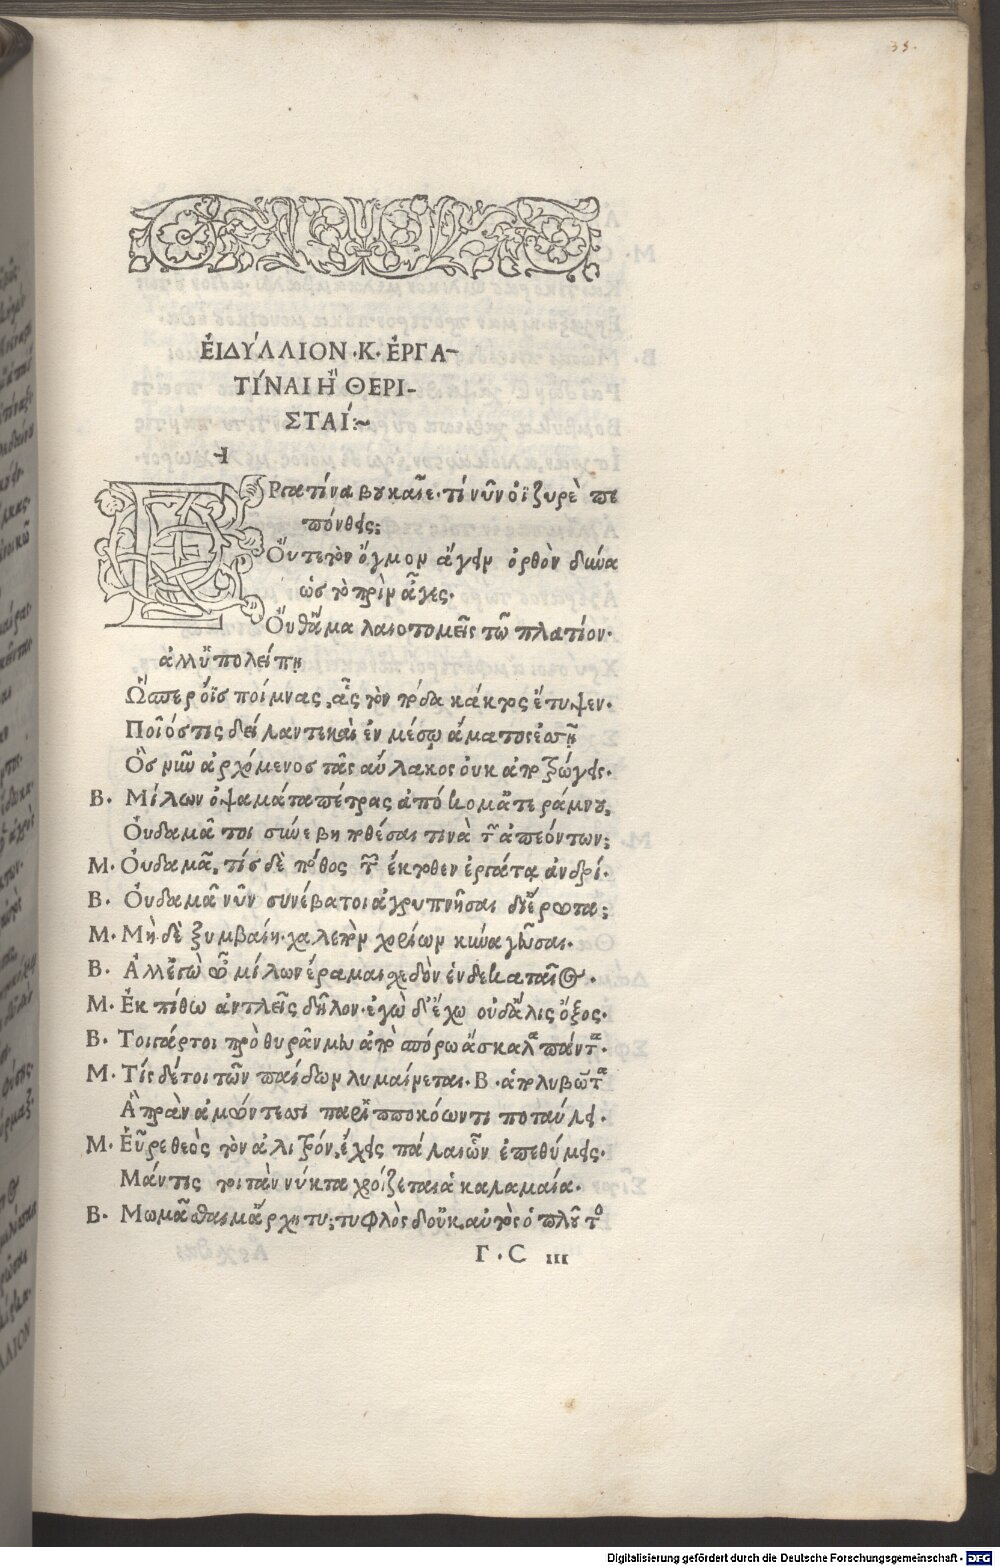 35.
ἘΙΔΎΛΛΙΟΝ ·Κ· ἘΡΓΑ-
ΤΊΝΑΙ Ἢ ΘΕΡΙ-
ΣΤΑΊ:~
ΕΡγατίνα βυκαῖε· τί νῦν ὀϊζυρὲ πε
πόνθεις;
Ὄυτε τὸν ὄγμον ἄγειν ὀρθὸν δύνα
ὡς τὸ πρὶν ἆγες·
Ὄυθ' ἅμα λαιοτομεῖς τῶ πλατίον·
ἀλλ' ὑπολείπῃ
Ὥσπερ ὄϊς ποίμνας, ἇς τὸν πόδα κάκτος ἔτυψεν·
Ποῖός τις δείλαν τε καὶ ἐν μέσῳ ἄματος ἐσσῇ
Ὃς νῦν ἀρχόμενος τᾶς αὔλακος ὀυκ ἀποτρώγεις·
Β· Μίλων ὀψαμάτα πέτρας ἀπόκομμ' ἀτεράμνου,
Ὀυδαμᾶ τοι συνέβη ποθέσαι τινὰ τῶν ἀπεόντων;
Μ· Ὀυδαμᾶ, τίς δὲ πόθος τῶν ἔκτοθεν ἐργάτᾳ ἀνδρί·
Β· Ὀυδαμᾶ νῦν συνέβα τοι ἀγρυπνῆσαι δι' ἔρωτα;
Μ· Μὴ δὲ ξυμβαίη· χαλεπὸν χορίων κύνα γεῦσαι·
Β· Ἀλλ' ἐγὼ ὦ μίλων ἔραμαι σχεδὸν ἑνδεκαταῖος·
Μ· Ἐκ πίθω ἀντλεῖς δῆλον· ἐγὼ δ' ἔχω ουδ' ἅλις ὄξος·
Β· Τοιγάρτοι πρὸ θυρᾶν μοι ἀπὸ σπόρω ἄσκαλα πάντα·
Μ· Τίς δέ τοι τῶν παίδων λυμαίνεται· Β· ἁ πολυβώτα
Ἃ πρὰν ἀμώντεσσι παρ' ἱπποκόωντι ποταύλει·
Μ· Ἑῦρε θεὸς τὸν ἀλιτρόν, ἔχεις πάλαι ὧν ἐπεθύμεις·
Μάντις τοι τὰν νύκτα χροΐξεται ἁ καλαμαία·
Β· Μωμᾶσθαι μ' ἄρχῃ τυ; τυφλὸς δ' οὐκ αὐτὸς ὁ πλοῦτος
Γ·C iii
Digitalisierung gefördert durch die Deutsche Forschungsgemeinschaft - DFG